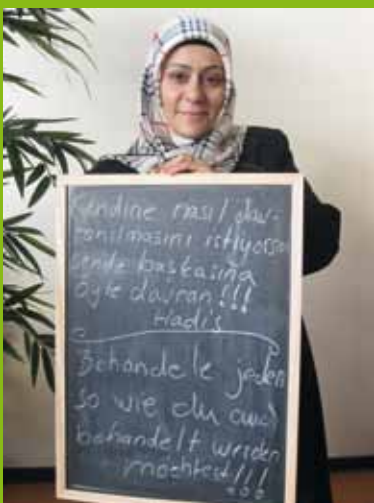 Kendine nasıl dav-
ranılmasını istiyorsan
sende başkasına
öyle davran!!!
Hadis
Behandele jeden
so wie du auch
behandelt werden
möchtest!!!